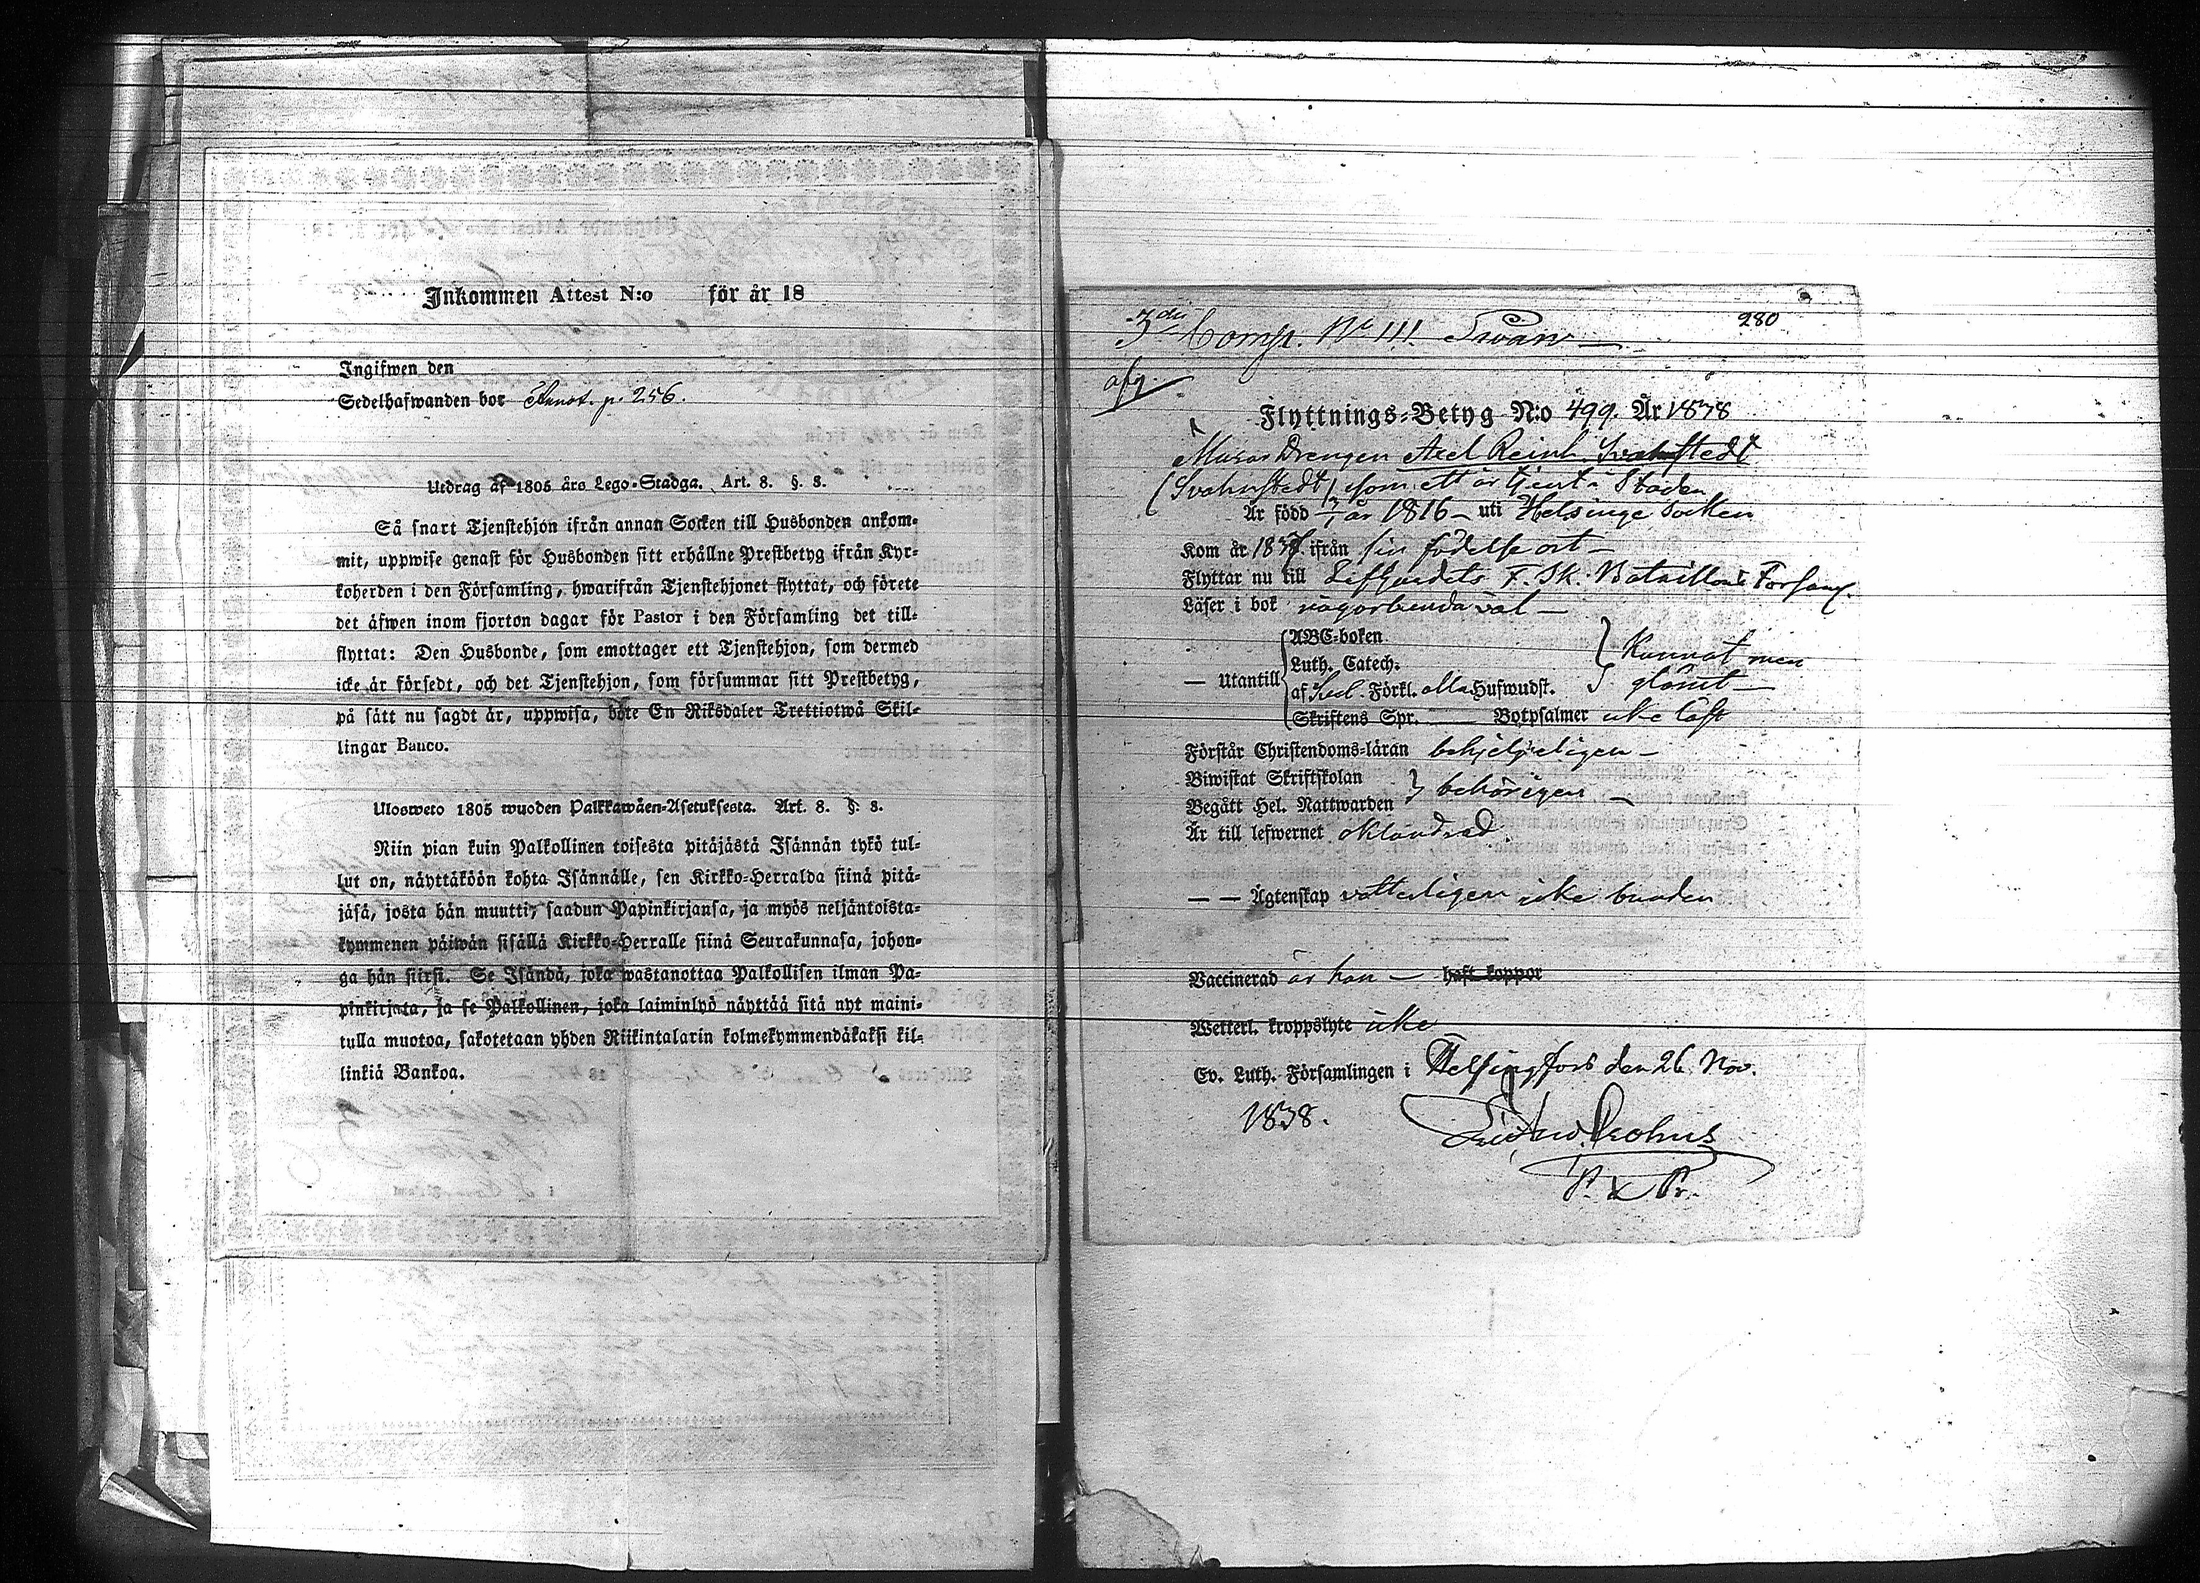 Inkommen Attest N:o för år 18
Ingifwen den
Sedelhafwanden bor Annot. p. 256.
Utdrag af 1805 års Lego-Stadga. Art. 8. §. 8.
Så snart Tjenstehjon ifrån annan Socken till Husbonden ankom-
mit, uppwise genast för Husbonden sitt erhållne Prestbetyg ifrån Kyr-
koherden i den Församling, hwarifrån Tjenstehjonet flyttat, och förete
det äfwen inom fjorton dagar för Pastor i den Församling det till-
flyttat: Den Husbonde, som emottager ett Tjenstehjon, som dermed
icke är försedt, och det Tjenstehjon, som försummar sitt Prestbetyg,
på sätt nu sagdt är, uppwisa, böte En Riksdaler Trettiotwå Skil-
lingar Banco.
Ulosweto 1805 wuoden Palkkawäen-Asetuksesta. Art. 8. §. 8.
Niin pian kuin Palkollinen toisesta pitäjästä Isännän tykö tul-
lut on, näyttäköön kohta Isännälle, sen Kirkko-Herralda siinä pitä-
jäsä, josta hän muutti, saadun Papinkirjansa, ja myös neljäntoista-
kymmenen päiwän sisällä Kirkko-Herralle siinä Seurakunnasa, johon-
ga hän siirsi. Se Isändä, joka wastanottaa Palkollisen ilman Pa-
pinkirjata, ja se Palkollinen, joka laiminlyö näyttää sitä nyt maini-
tulla muotoa, sakotetaan yhden Riikintalarin kolmekymmendäkaksi kil-
linkiä Bankoa.
280
3die Comp. No 111 Svan
afg.
Flyttnings-Betyg N:o 499. År 1838
Drengen Axel Reinh. Svahnstedt
(Svahnstedt) som ett år tjent i Staden
Är född år 1816 uti Helsinge Socken
Kom år 1837 ifrån sin födelse ort
Flyttar nu till Lifgardets F. Sk. Bataillons Församl.
Läser i bok någorlunda väl
ABC-boken
Luth. Catech. Kunnat men
— Utantill af Förkl. alla Hufwudst. glömt
Skriftens Spr. Botpsalmer icke läst
Förstår Christendoms-läran behjelpeligen
Biwistat Skriftskolan
Begått Hel. Nattwarden behörigen
Är till lefwernet oklandrad
— — Ägtenskap vetterligen icke bunden
Vaccinerad är han haft koppor
Wetterl. kroppslyte icke
Ev. Luth. Församlingen i Helsingfors den 26 Nov.
1838.
Crohns